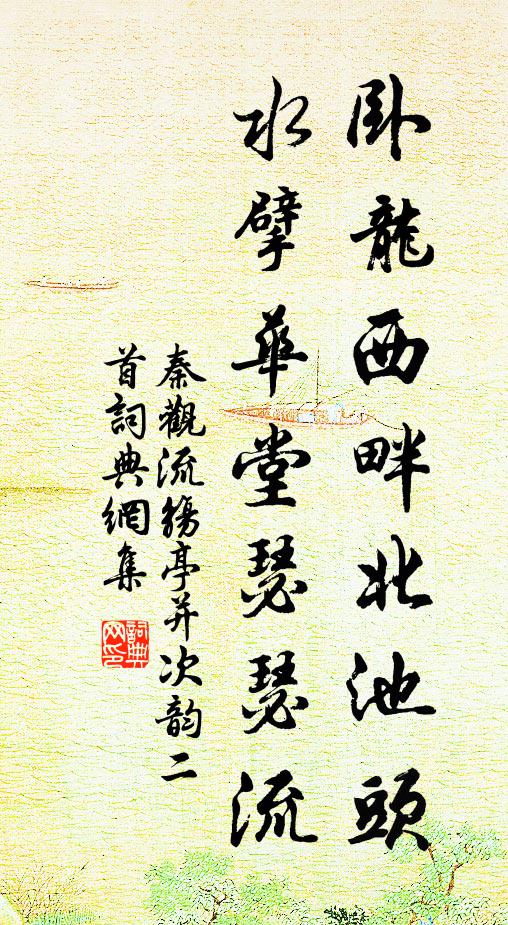 臥龍西畔北池頭
水擘華堂瑟瑟流
秦觀流觴亭并次韵二
首詞典網集
詞典
网印